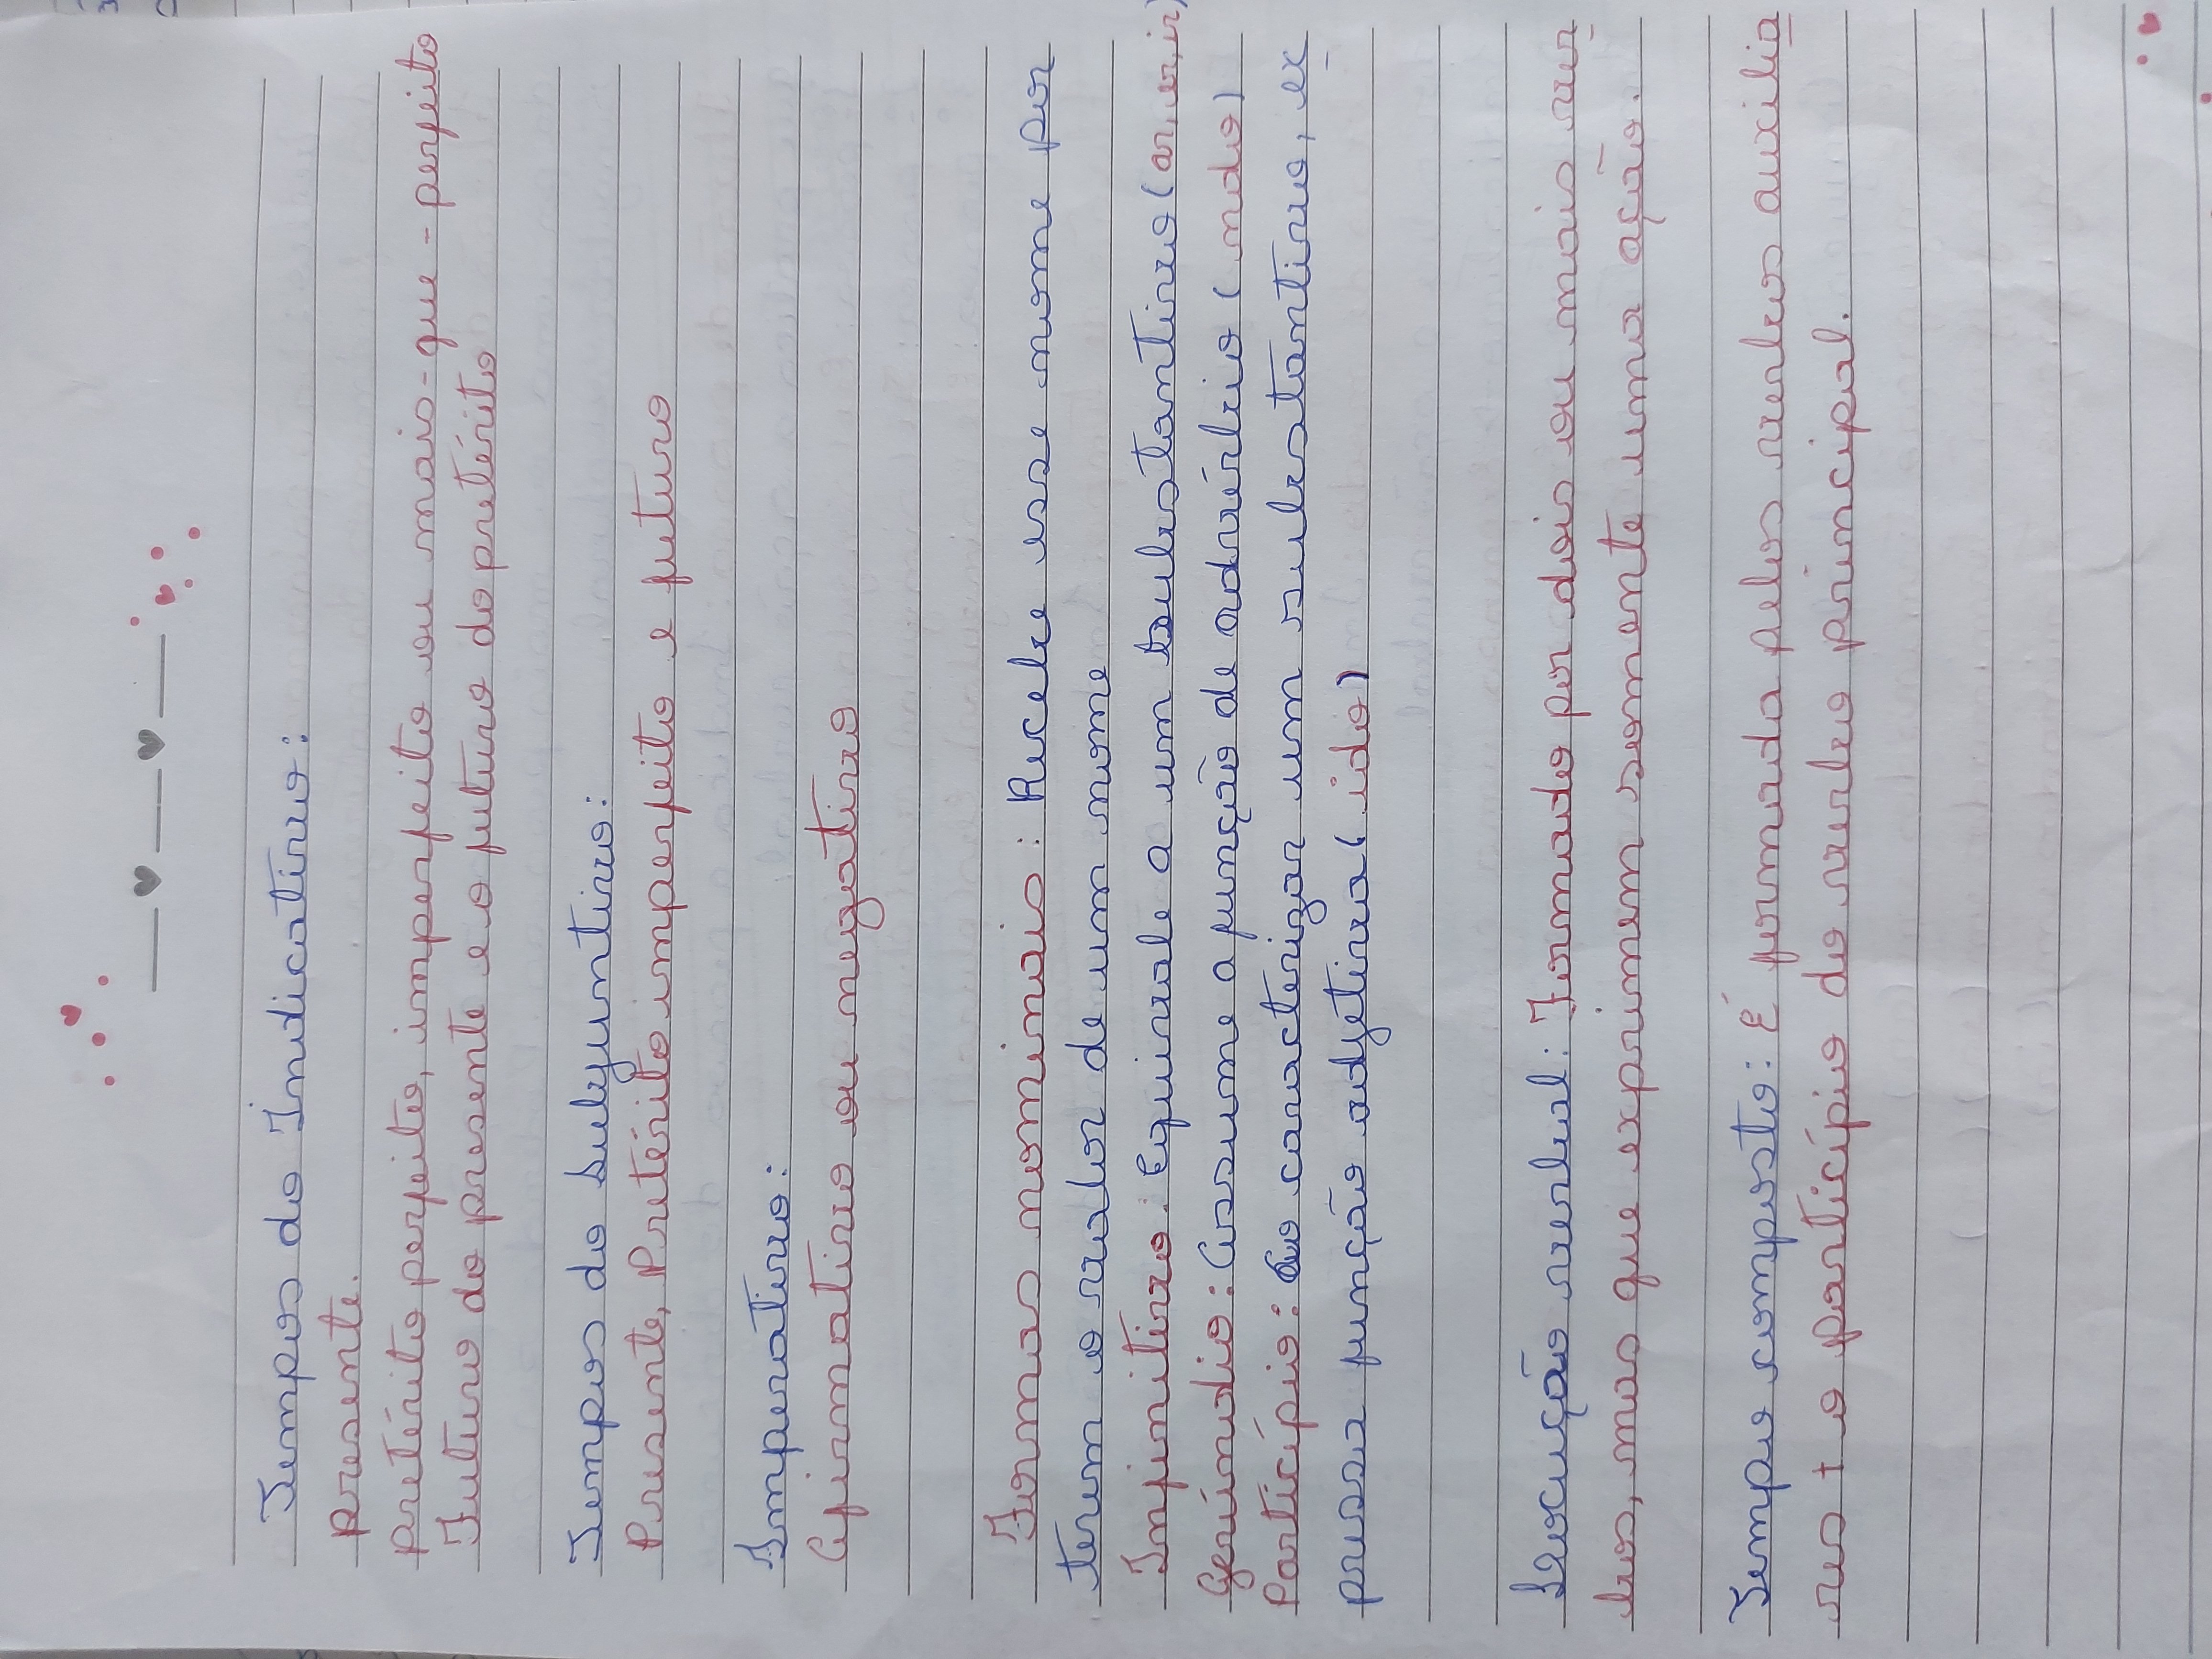 Tempos do Indicativo:
presente.
pretérito perfeito, imperfeito ou mais-que-perfeito
Futuro do presente e o futuro do pretérito
Tempos do Subjuntivo:
Presente, Pretérito imperfeito e futuro
Imperativo:
Afirmativo ou negativo
Formas nominais: Recebe esse nome por
terem o valor de um nome
Infinitivo: Equivale a um substantivo (ar, er, ir)
Gerúndio: Assume a função de advérbio (ndo)
Particípio: Ao caracterizar um substantivo, ex
pressa função adjetiva (ido)
Locução verbal: Formado por dois ou mais ver
bos, mas que exprimem somente uma ação.
Tempo composto: É formada pelos verbos auxilia
res + o particípio do verbo principal.